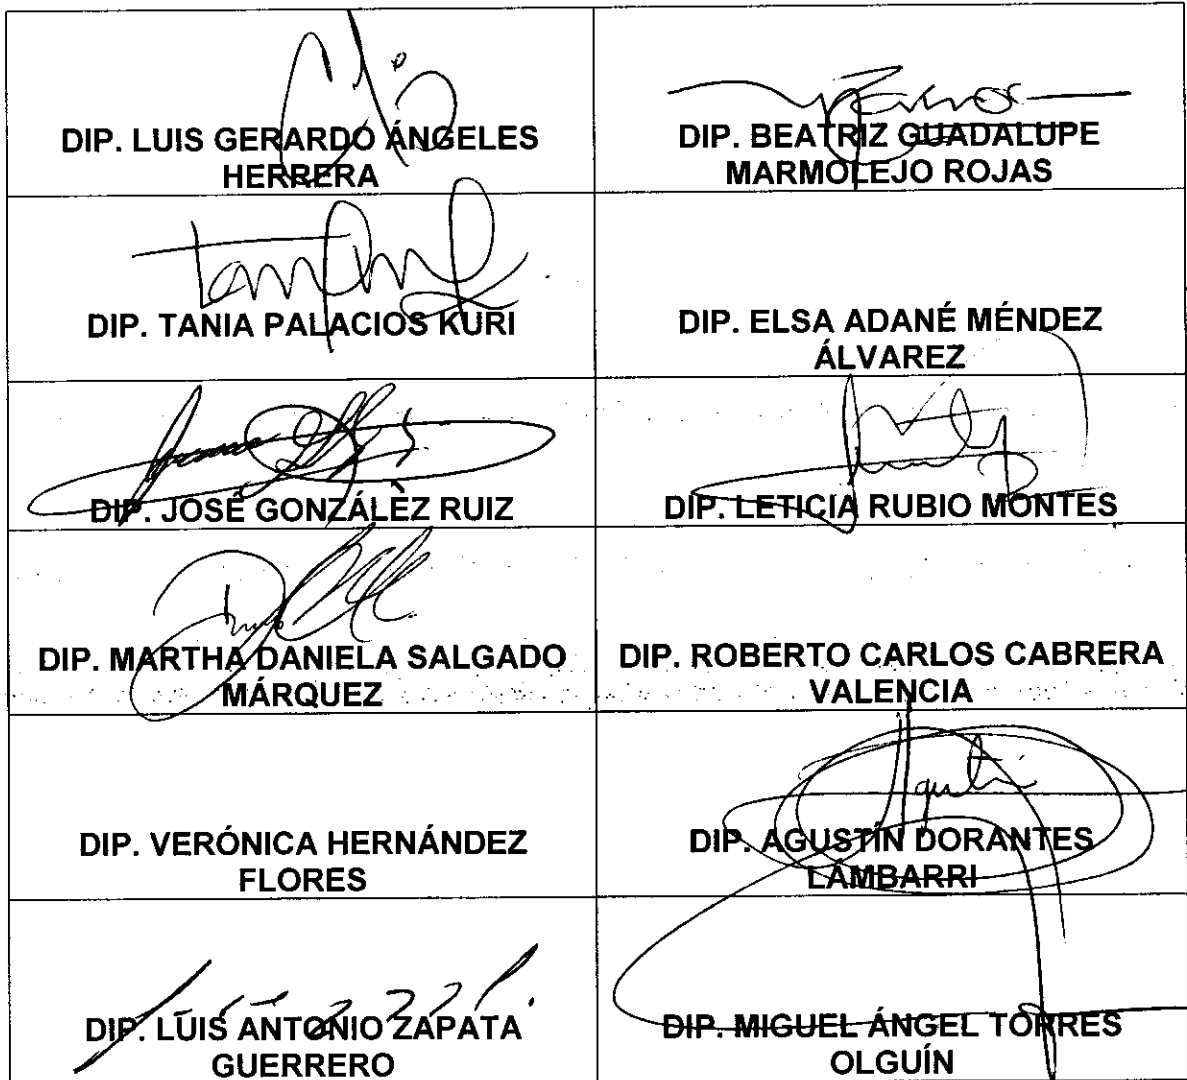 DIP. LUIS GERARDO ÁNGELES
HERRERA
DIP. BEATRIZ GUADALUPE
MARMOLEJO ROJAS
DIP. TANIA PALACIOS KURI
DIP. ELSA ADANÉ MÉNDEZ
ÁLVAREZ
DIP. JOSÉ GONZÁLEZ RUIZ
DIP. LETICIA RUBIO MONTES
DIP. MARTHA DANIELA SALGADO
MÁRQUEZ
DIP. ROBERTO CARLOS CABRERA
VALENCIA
DIP. VERÓNICA HERNÁNDEZ
FLORES
Agustín
DIP. AGUSTÍN DORANTES
LÁMBARRI
DIP. LUIS ANTONIO ZAPATA
GUERRERO
DIP. MIGUEL ÁNGEL TORRES
OLGUÍN